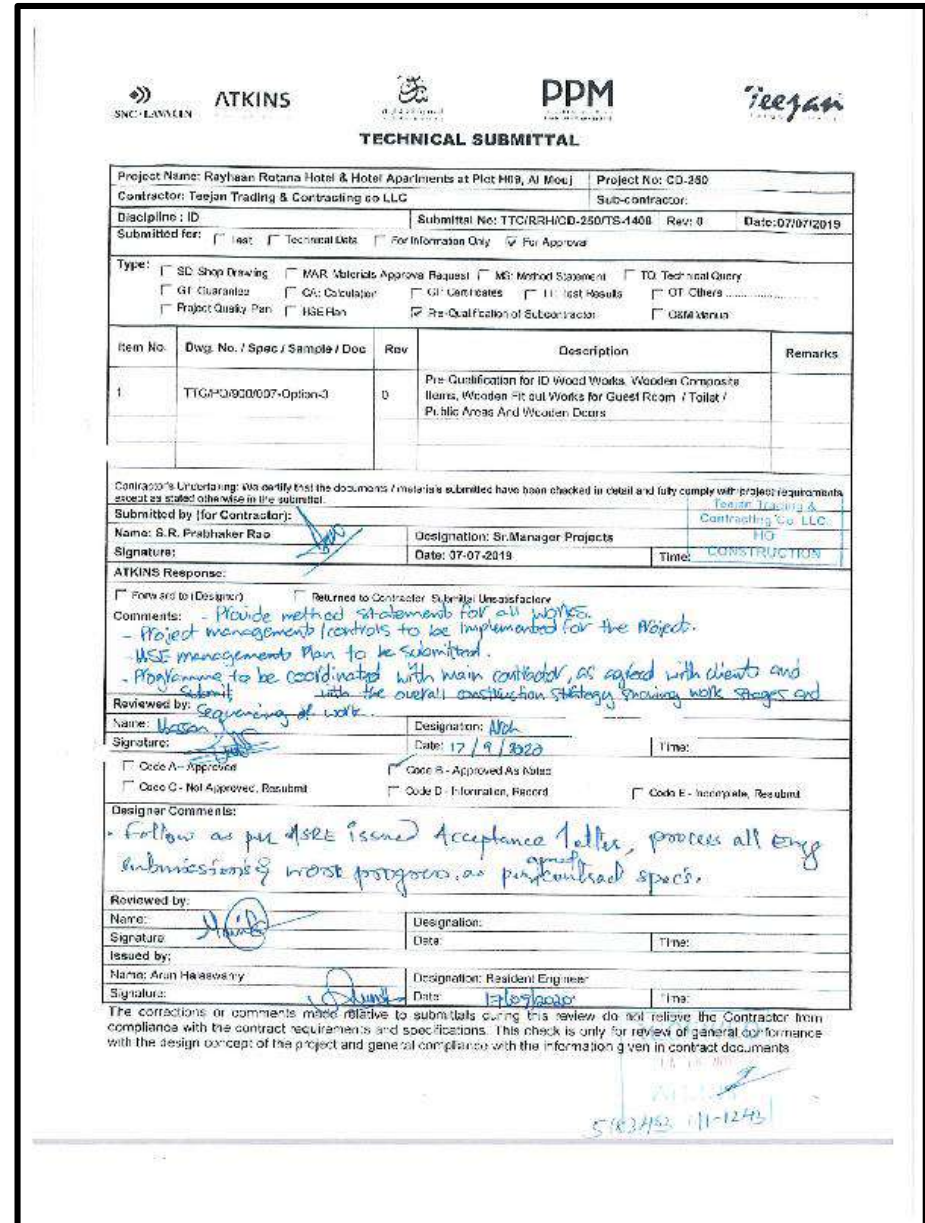 SNC·LAVALIN ATKINS PPM Teejan
TECHNICAL SUBMITTAL
Project Name: Rayhaan Rotana Hotel & Hotel Apartments at Plot H09, Al Mouj Project No: CD-250
Contractor: Teejan Trading & Contracting co LLC Sub-contractor:
Discipline : ID Submittal No: TTC/RRH/CD-250/TS-1406 Rev: 0 Date:07/07/2019
Submitted for: Test Technical Data For Information Only For Approval
Type: SD: Shop Drawing MAR: Materials Approval Request MS: Method Statement TQ: Technical Query
GT: Guarantee CA: Calculation CT: Certificates TT: Test Results OT: Others ....................
Project Quality Plan HSE Plan Pre-Qualification of Subcontractor O&M Manual
Item No. Dwg. No. / Spec / Sample / Doc Rev Description Remarks
1 TTC/PQ/900/007-Option-3 0 Pre-Qualification for ID Wood Works, Wooden Composite
Items, Wooden Fit out Works for Guest Room / Toilet /
Public Areas And Wooden Doors
Contractor's Undertaking: We certify that the documents / materials submitted have been checked in detail and fully comply with project requirements
except as stated otherwise in the submittal.
Teejan Trading &
Contracting Co. LLC.
HO
CONSTRUCTION
Submitted by (for Contractor):
Name: S.R. Prabhaker Rao Designation: Sr.Manager Projects
Signature: Date: 07-07-2019 Time:
ATKINS Response:
Forward to (Designer) Returned to Contractor Submittal Unsatisfactory
Comments: - Provide method statements for all works.
- Project management/controls to be implemented for the Project.
- HSE management Plan to be submitted.
- Programme to be coordinated with main contractor, as agreed with clients and
Submit with the overall construction strategy showing work stages and
Reviewed by: Sequencing of work.
Name: Hassan Designation:
Signature: Date: 17/9/2020 Time:
Code A - Approved Code B - Approved As Noted
Code C - Not Approved, Resubmit Code D - Information, Record Code E - Incomplete, Resubmit
Designer Comments:
- Follow as per issued Acceptance letter, process all Engg
submissions & work progress, as per contract specs.
Reviewed by:
Name: Designation:
Signature Date: Time:
Issued by:
Name: Arun Halaswamy Designation: Resident Engineer
Signature: Date: 17/09/2020 Time:
The corrections or comments made relative to submittals during this review do not relieve the Contractor from
compliance with the contract requirements and specifications. This check is only for review of general conformance
with the design concept of the project and general compliance with the information given in contract documents